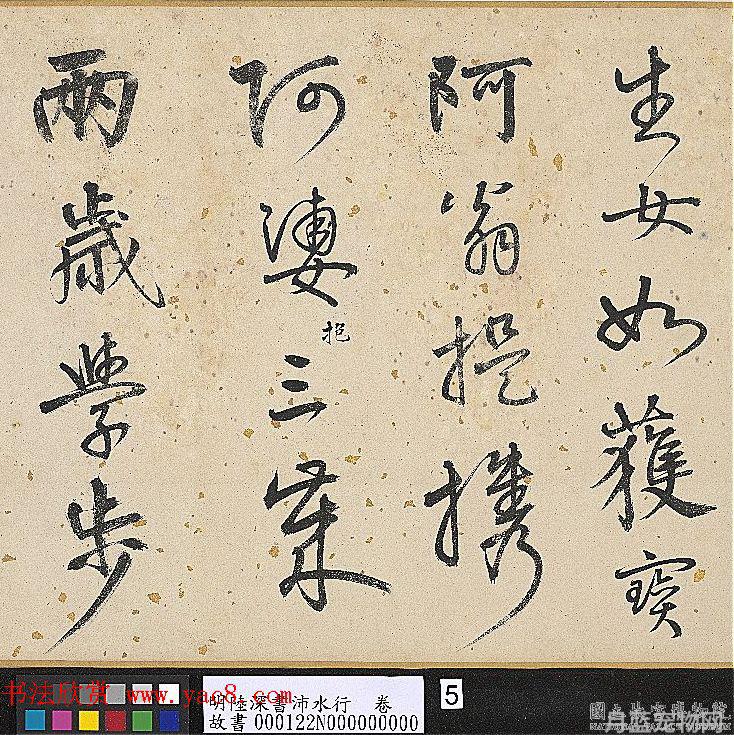 生女如獲寶
阿翁提携
阿婆抱三
兩歲學步
书法欣赏 www.yac8.com
明陸深書沛水行 卷
故書 000122N000000000
5
自然宠物网